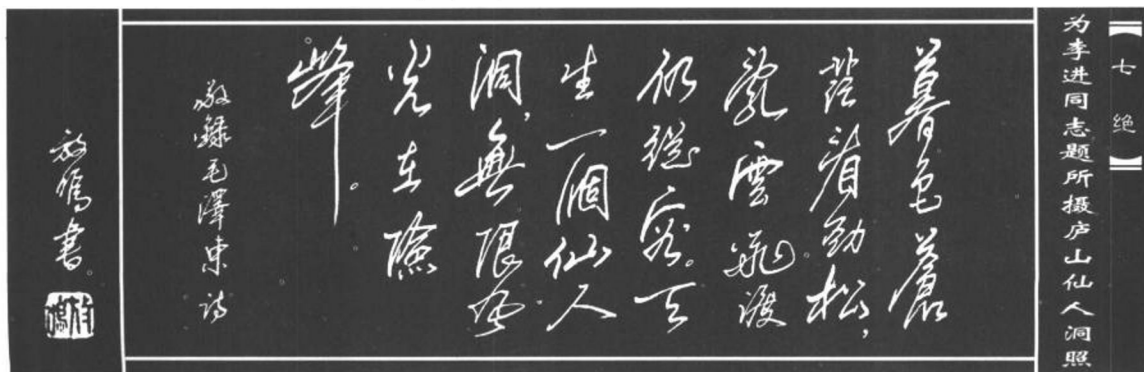 七绝
为李进同志题所摄庐山仙人洞照
暮色蒼
茫看劲松，
亂雲飛渡
仍從容。天
生一個仙人
洞，無限風
光在險
峰。
敬錄毛澤東诗
放書。